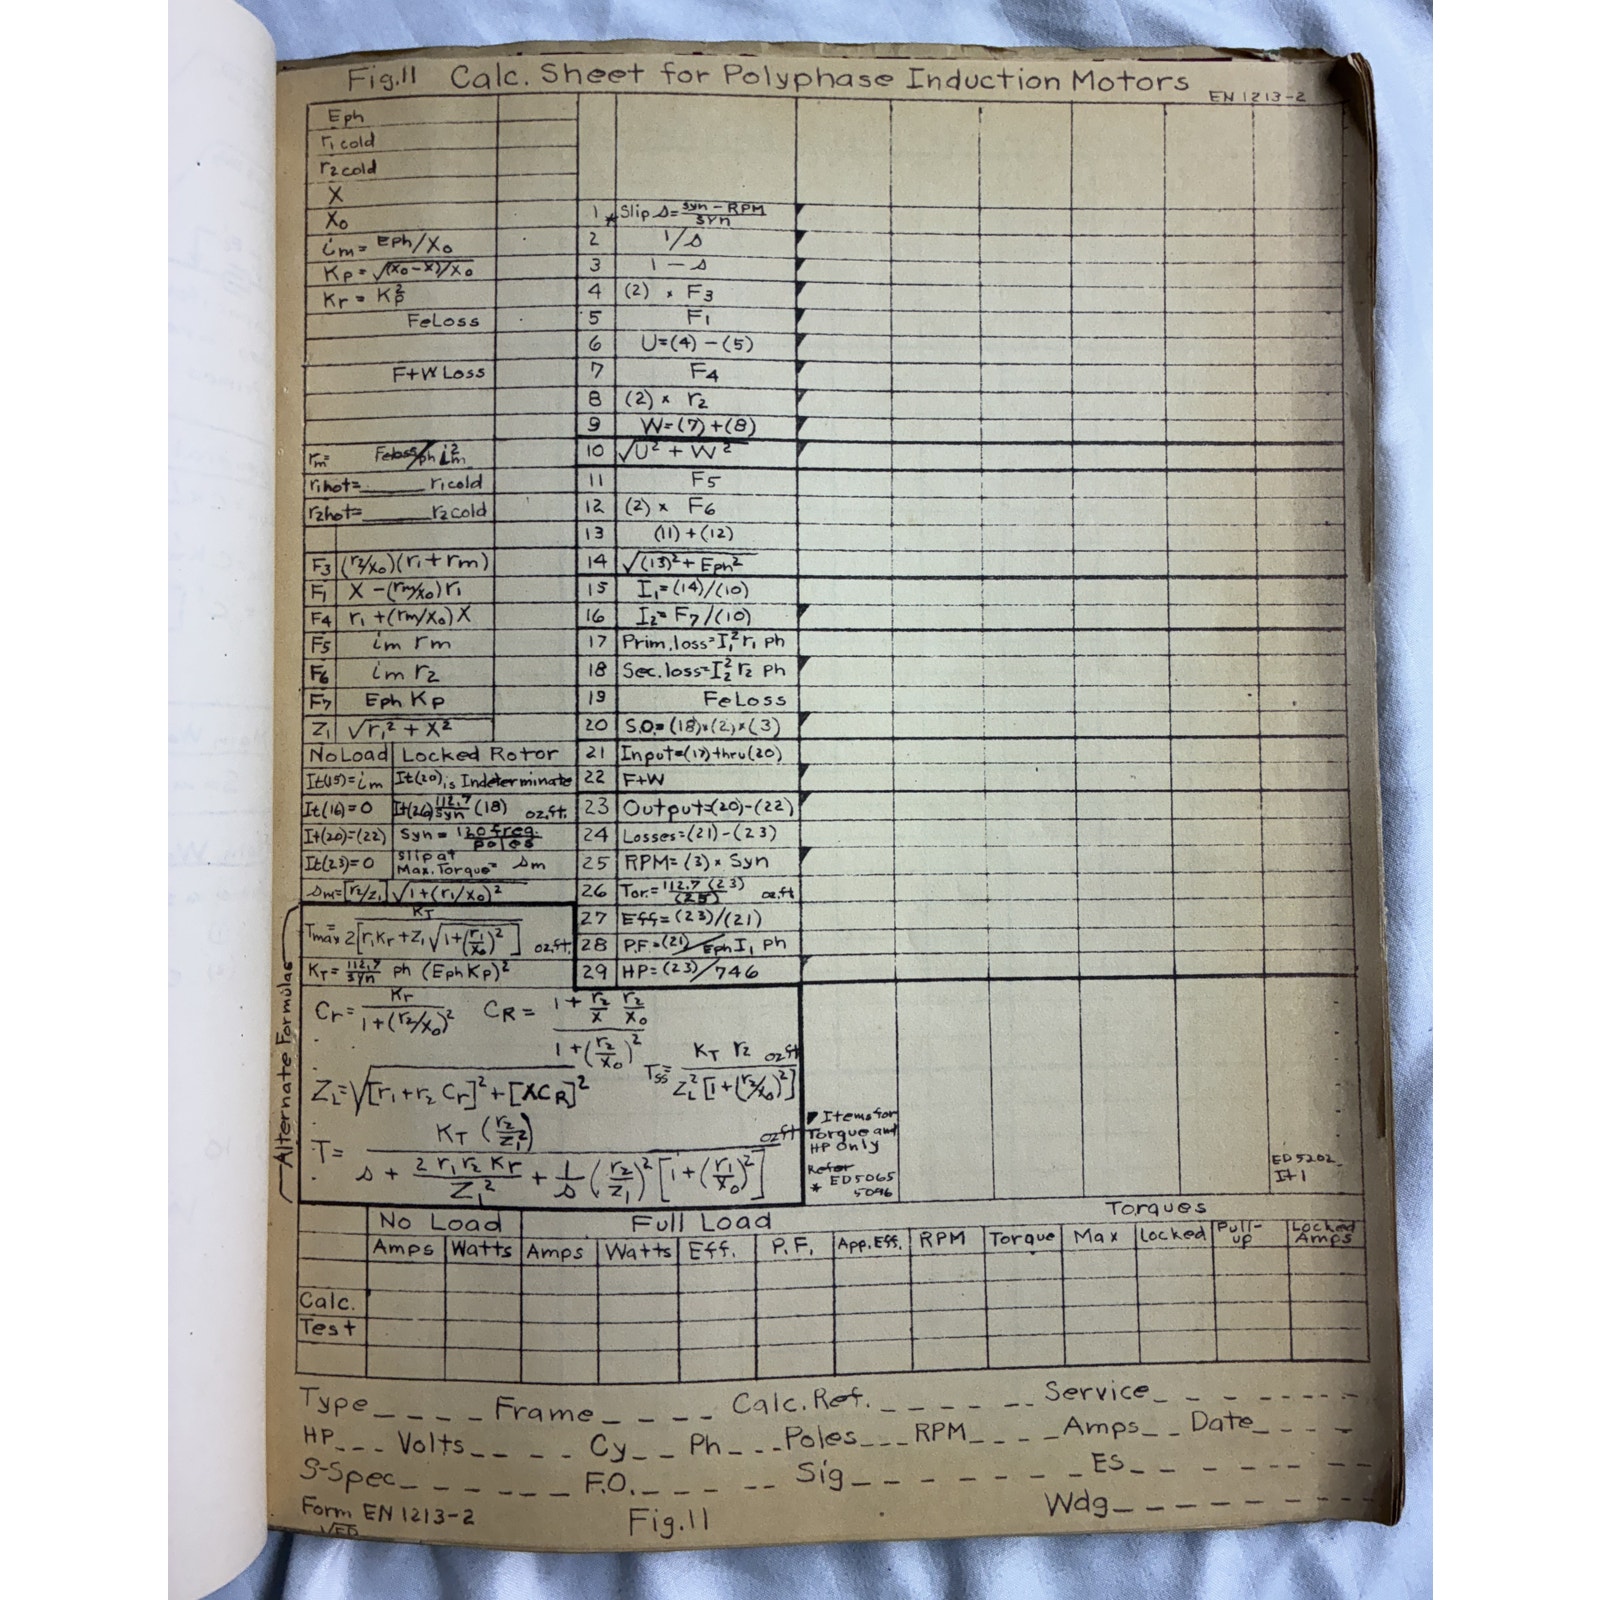 Fig.11 Calc. Sheet for Polyphase Induction Motors EN 1213-2
Eph
r₁ cold
r₂ cold
X
X₀
im = Eph/X₀
Kp = √(X₀-X)/X₀
Kr = Kp²
Fe Loss
F+W Loss
rm = Feloss/ph im²
r₁hot=______ r₁cold
r₂hot=______ r₂cold
F₃ (r₂/X₀)(r₁+rm)
F₁ X-(rm/X₀)r₁
F₄ r₁+(rm/X₀)X
F₅ im rm
F₆ im r₂
F₇ Eph Kp
Z₁ √r₁²+X²
No Load Locked Rotor
It(15)=im It(20) is Indeterminate
It(16)=0 It(26) 112.7/Syn (18) oz.ft.
It(20)=(22) Syn = 120 freq./poles
It(23)=0 Slip at Max. Torque = sm
sm=[r₂/Z₁]√1+(r₁/X₀)²
1 * Slip s = syn-RPM/syn
2 1/s
3 1-s
4 (2) × F₃
5 F₁
6 U=(4)-(5)
7 F₄
8 (2) × r₂
9 W=(7)+(8)
10 √U²+W²
11 F₅
12 (2) × F₆
13 (11)+(12)
14 √(13)²+Eph²
15 I₁=(14)/(10)
16 I₂=F₇/(10)
17 Prim.loss=I₁²r₁ ph
18 Sec.loss=I₂²r₂ ph
19 Fe Loss
20 S.O.=(18)×(2)×(3)
21 Input=(17)thru(20)
22 F+W
23 Output=(20)-(22)
24 Losses=(21)-(23)
25 RPM=(3)×Syn
26 Tor.=112.7(23)/(25) oz.ft
27 Eff=(23)/(21)
28 P.F.=(21)/Eph I₁ ph
29 HP=(23)/746
Alternate Formulas
Tmax = KT/2[r₁Kr+Z₁√1+(r₁/X₀)²] oz.ft.
KT = 112.7/syn ph (Eph Kp)²
Cr = Kr/1+(r₂/X₀)² CR = 1+r₂/X r₂/X₀/1+(r₂/X₀)²
ZL=√[r₁+r₂ Cr]²+[XCR]² Tss= KT r₂/ZL²[1+(r₂/X₀)²] oz ft
T= KT(r₂/Z₁²)/s+2r₁r₂Kr/Z₁²+1/s(r₂/Z₁)²[1+(r₁/X₀)²] oz ft
◤ Items for
Torque and
HP only
Refer
* ED5065
5096
ED5202
It 1
No Load Full Load Torques
Amps Watts Amps Watts Eff. P.F. App.Eff. RPM Torque Max Locked Pull-up Locked Amps
Calc.
Test
Type____ Frame____ Calc.Ref._____ Service________
HP___ Volts____ Cy__ Ph___ Poles___ RPM____ Amps__ Date____
S-Spec______ F.O.______ Sig_______ ES________
Wdg________
Form EN 1213-2 Fig.11